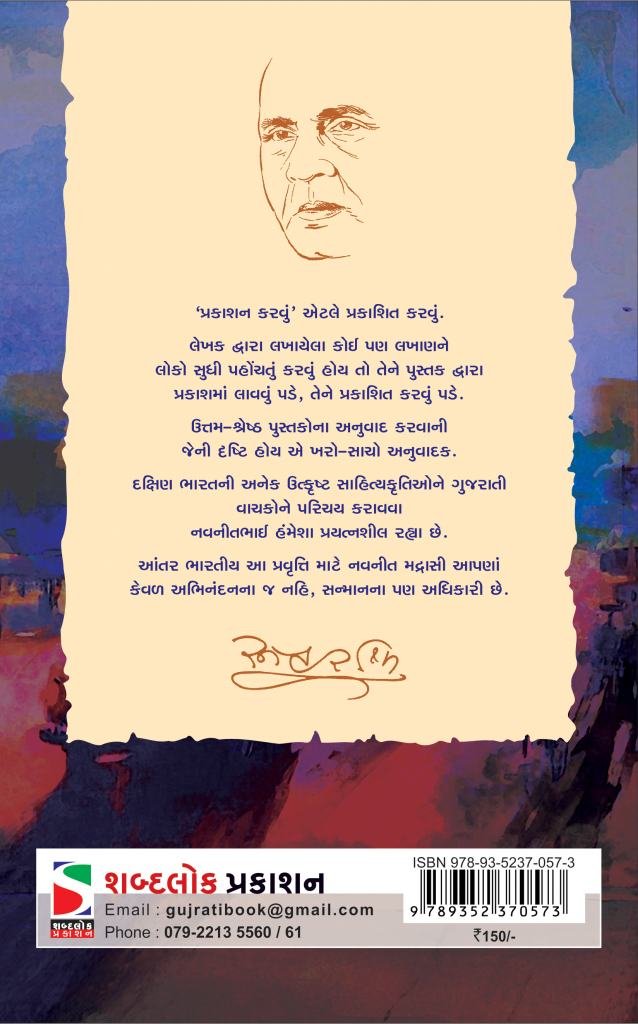 ‘પ્રકાશન કરવું’ એટલે પ્રકાશિત કરવું.
લેખક દ્વારા લખાયેલા કોઈ પણ લખાણને
લોકો સુધી પહોંચતું કરવું હોય તો તેને પુસ્તક દ્વારા
પ્રકાશમાં લાવવું પડે, તેને પ્રકાશિત કરવું પડે.
ઉત્તમ-શ્રેષ્ઠ પુસ્તકોના અનુવાદ કરવાની
જેની દૃષ્ટિ હોય એ ખરો-સાચો અનુવાદક.
દક્ષિણ ભારતની અનેક ઉત્કૃષ્ટ સાહિત્યકૃતિઓને ગુજરાતી
વાચકોને પરિચય કરાવવા
નવનીતભાઈ હંમેશા પ્રયત્નશીલ રહ્યા છે.
આંતર ભારતીય આ પ્રવૃત્તિ માટે નવનીત મદ્રાસી આપણાં
કેવળ અભિનંદનના જ નહિ, સન્માનના પણ અધિકારી છે.
શબ્દલોક પ્રકાશન
Email : gujratibook@gmail.com
Phone : 079-2213 5560 / 61
શબ્દલોક
પ્રકાશન
ISBN 978-93-5237-057-3
9 789352 370573
₹150/-